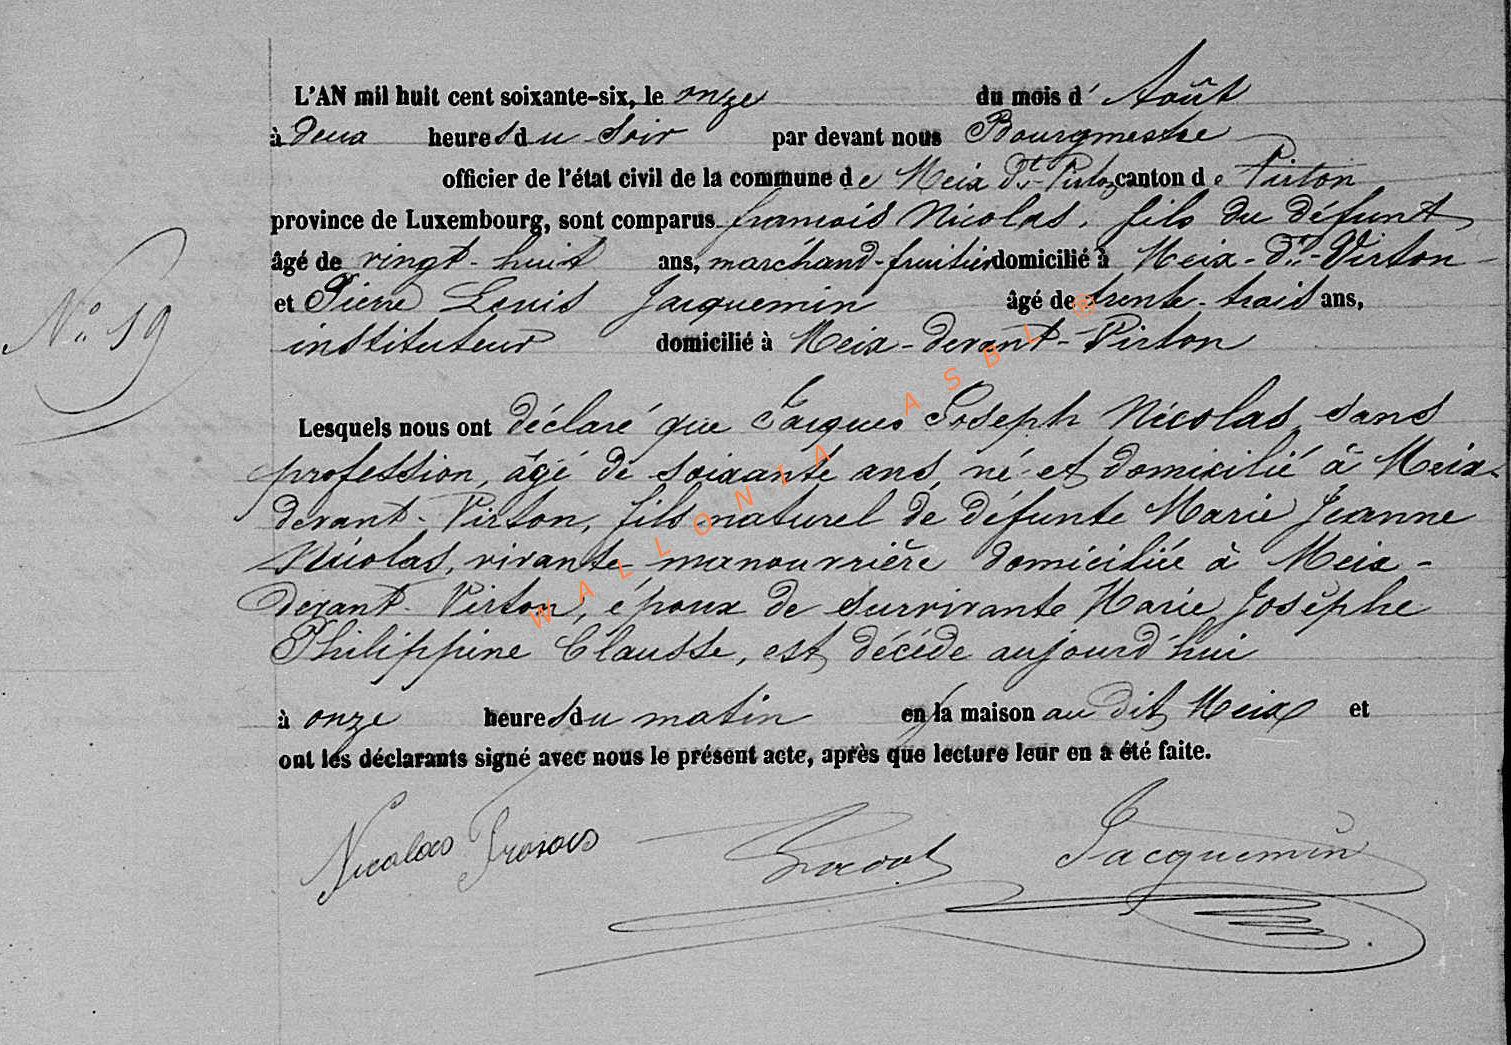 L'AN mil huit cent soixante-six, le onze du mois d' Août
à deux heures du soir par devant nous Bourgmestre
officier de l'état civil de la commune de Meix dt. Virton, canton de Virton
province de Luxembourg, sont comparus francois Nicolas, fils du défunt
âgé de vingt-huit ans, marchand-fruitier domicilié à Meix-dt.-Virton
et Pierre Louis Jacquemin âgé de trente-trois ans,
N° 19
instituteur domicilié à Meix-devant-Virton
Lesquels nous ont déclaré que Jacques Joseph Nicolas, sans
profession, âgé de soixante ans, né et domicilié à Meix-
devant-Virton, fils naturel de défunte Marie Jeanne
Nicolas, vivante manouvrière domiciliée à Meix-
devant-Virton, époux de survivante Marie Josèphe
Philippine Clausse, est décédé aujourd'hui
à onze heures du matin en la maison au dit Meix et
ont les déclarants signé avec nous le présent acte, après que lecture leur en a été faite.
Nicolas Fransois Jacquemin
WALLONIA ASBL ©